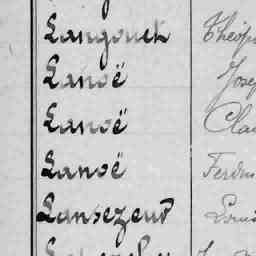 Langouet Théop
Lanoë Jose
Lanoë Cla
Lanoë Ferdin
Lansezeur Louis